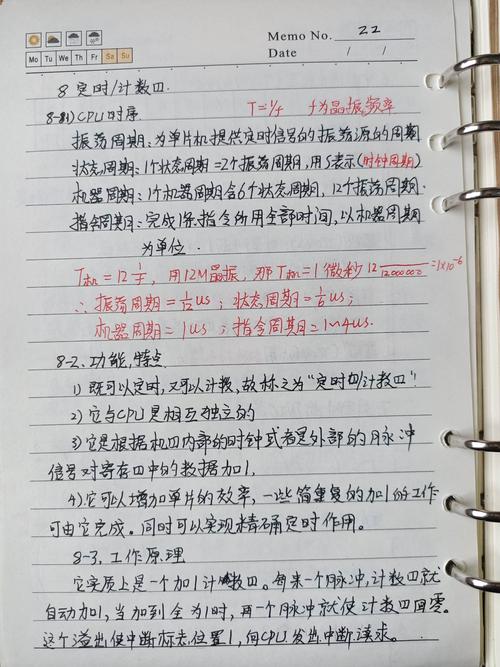 Memo No. 22
Mo Tu We Th Fr Sa Su
Date / /
8 定时/计数四.
8-1) CPU时序. T=1/f f为晶振频率
振荡周期:为单片机提供定时信号的振荡源的周期
状态周期:1个状态周期=2个振荡周期,用S表示(时钟周期)
机器周期:1个机器周期含6个状态周期,12个振荡周期.
指令周期:完成1条指令所用全部时间,以机器周期
为单位.
T机=12 1/f, 用12M晶振,那T机=1微秒 12 1/12000000=1×10⁻⁶
∴振荡周期=1/12us;状态周期=1/6us;
机器周期=1us;指令周期=1~4us.
8-2.功能,特点
1)既可以定时,又可以计数,故称之为"定时四/计数四"
2)它与CPU是相互独立的
3)它是根据机四内部的时钟或者是外部的脉冲
信号对寄存四中的数据加1.
4)它可以增加单片的效率,一些简重复的加1的工作
可由它完成。同时可以实现精确定时作用。
8-3.工作原理
它实质上是一个加1计数四。每来一个脉冲,计数四就
自动加1,当加到全为1时,再一个脉冲就使计数四回零。
这个溢出使中断标志位置1,向CPU发出中断请求。